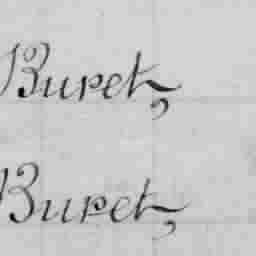 Buret,
Buret,